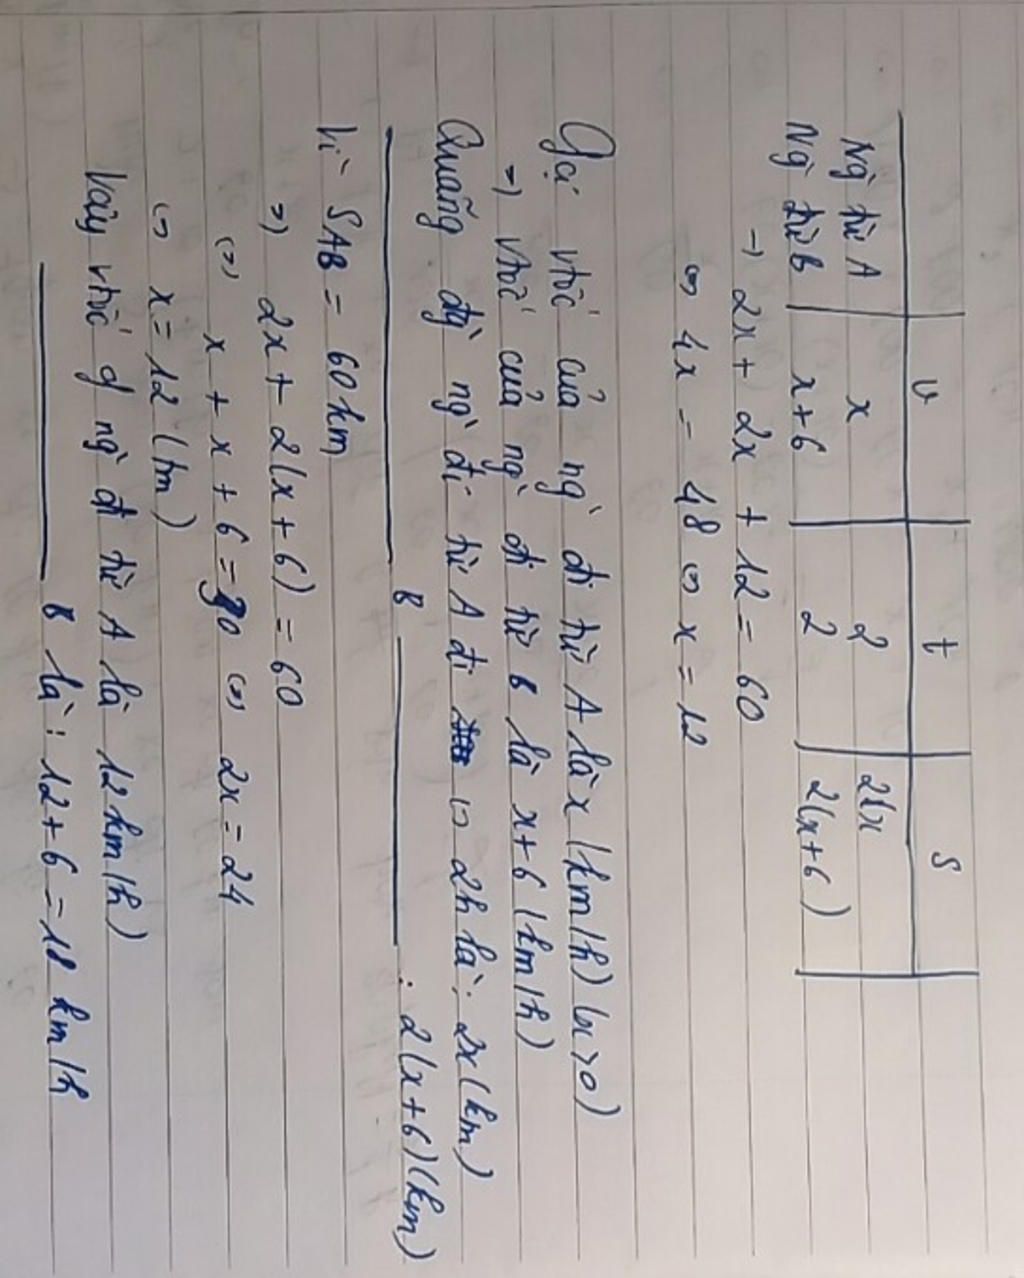 v t S
Ng` từ A x 2 2(x
Ng` từ B x+6 2 2(x+6)
→ 2x + 2x + 12 = 60
⇔ 4x = 48 ⇔ x = 12
Gọi vtốc của ng` đi từ A là x (km/h) (x>0)
⇒ vtốc của ng` đi từ B là x+6 (km/h)
Quãng đg` ng` đi từ A đi 2h là: 2x (km)
B : 2(x+6) (km)
Vì SAB = 60 km
⇒ 2x + 2(x+6) = 60
⇔ x + x + 6 = 30 ⇔ 2x = 24
⇔ x = 12 (tm)
Vậy vtốc ng` đi từ A là 12 km/h)
B là: 12+6 = 18 km/h